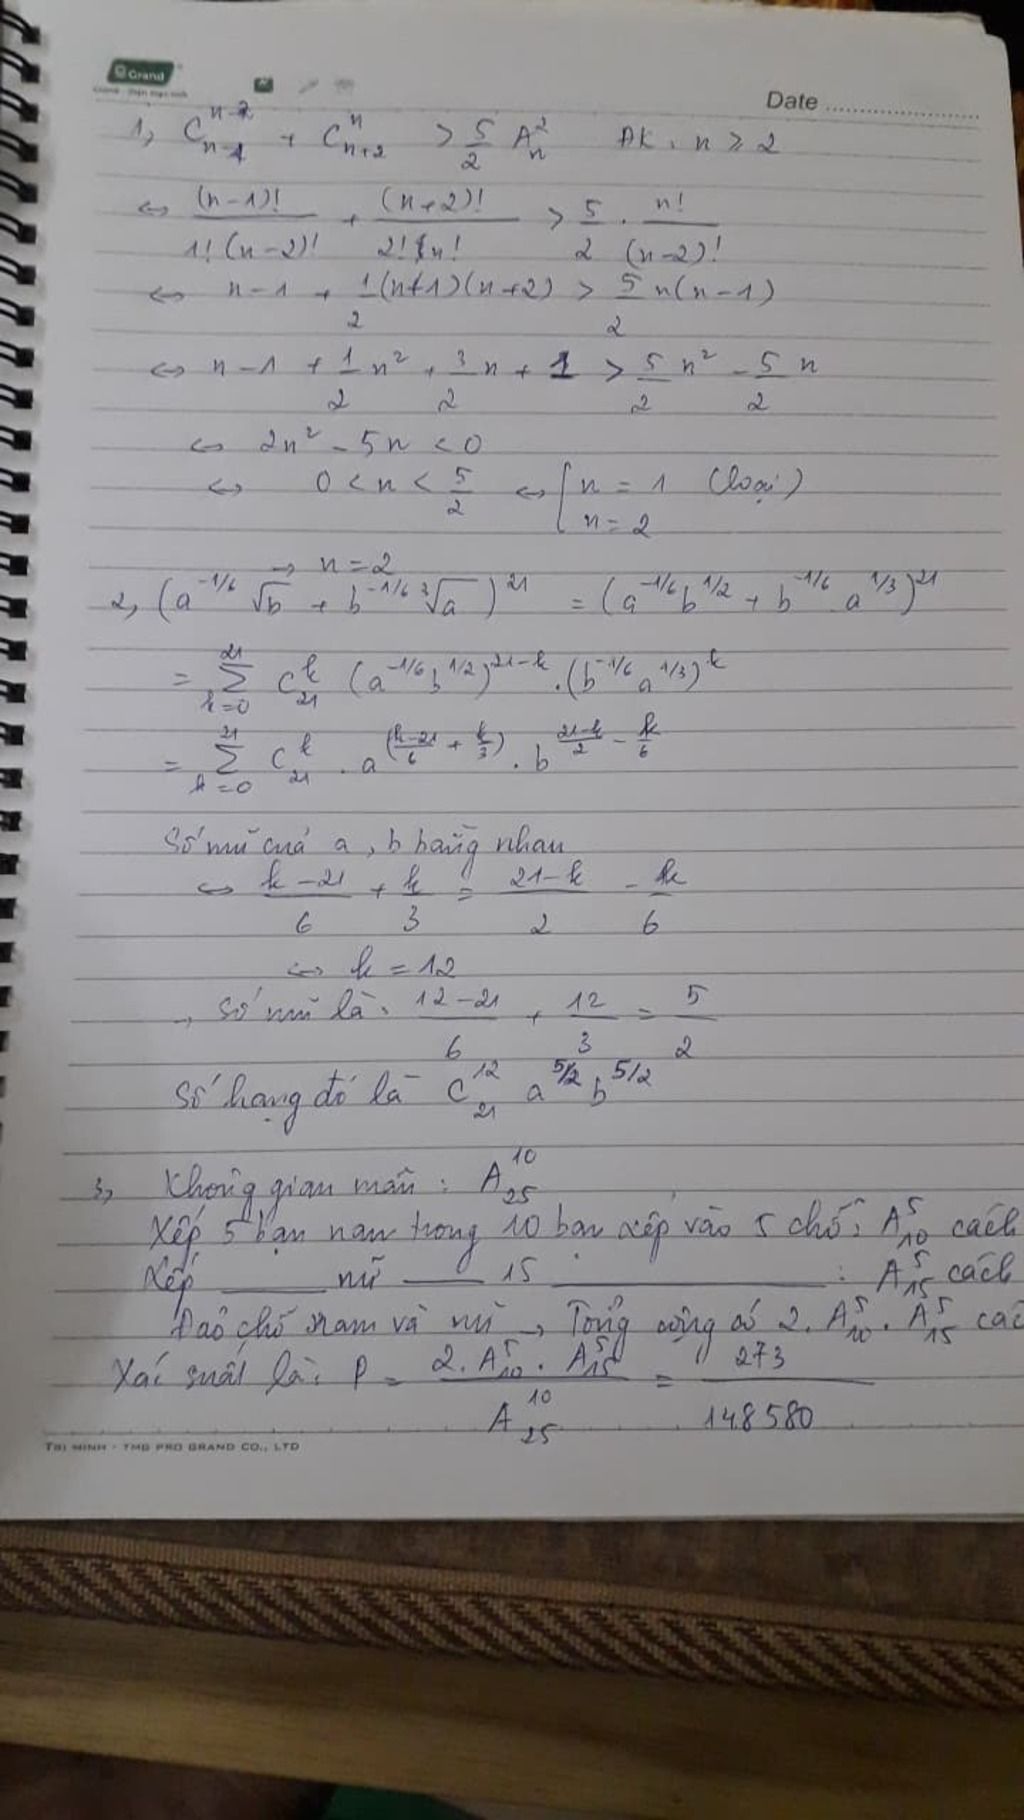 Grand
Date
1, C_{n-1}^{n-2} + C_{n+2}^{n} > 5/2 A_n^2 ĐK: n ≥ 2
⇔ (n-1)!/(1!(n-2)!) + (n+2)!/(2! n!) > 5/2 . n!/(n-2)!
⇔ n-1 + 1/2(n+1)(n+2) > 5/2 n(n-1)
⇔ n-1 + 1/2 n² + 3/2 n + 1 > 5/2 n² - 5/2 n
⇔ 2n² - 5n < 0
⇔ 0 < n < 5/2 ⇔ [ n = 1 (loại)
n = 2
→ n = 2
2, (a^{-1/6} √b + b^{-1/6} ³√a)^{21} = (a^{-1/6} b^{1/2} + b^{-1/6} a^{1/3})^{21}
= Σ_{k=0}^{21} C_{21}^{k} (a^{-1/6} b^{1/2})^{21-k} . (b^{-1/6} a^{1/3})^{k}
= Σ_{k=0}^{21} C_{21}^{k} . a^{((k-21)/6 + k/3)} . b^{(21-k)/2 - k/6}
Số mũ của a, b bằng nhau
⇔ (k-21)/6 + k/3 = (21-k)/2 - k/6
⇔ k = 12
→ Số mũ là: (12-21)/6 + 12/3 = 5/2
Số hạng đó là C_{21}^{12} a^{5/2} b^{5/2}
3, Không gian mẫu: A_{25}^{10}
Xếp 5 bạn nam trong 10 bạn xếp vào 5 chỗ: A_{10}^{5} cách
Xếp ___ nữ ___ 15 ___ : A_{15}^{5} cách
Đảo chỗ nam và nữ → Tổng cộng có 2. A_{10}^{5} . A_{15}^{5} các
Xác suất là: P = (2. A_{10}^{5} . A_{15}^{5})/A_{25}^{10} = 273/148580
TRI MINH - TMG PRO GRAND CO., LTD